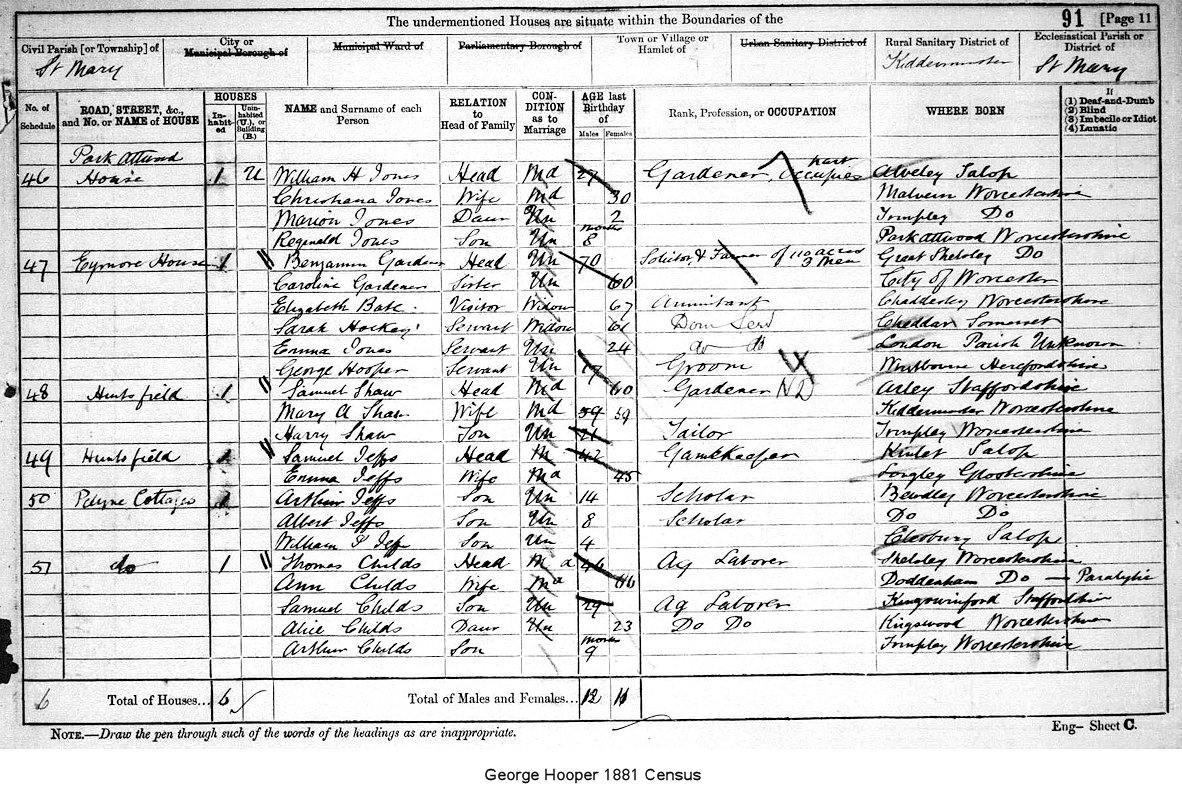 The undermentioned Houses are situate within the Boundaries of the 91 [Page 11
Civil Parish [or Township] of City or Municipal Borough of Municipal Ward of Parliamentary Borough of Town or Village or Hamlet of Urban Sanitary District of Rural Sanitary District of Ecclesiastical Parish or District of
St Mary Kidderminster St Mary
No. of Schedule ROAD, STREET, &c., and No. or NAME of HOUSE HOUSES Inhabited Uninhabited (U.), or Building (B.) NAME and Surname of each Person RELATION to Head of Family CONDITION as to Marriage AGE last Birthday of Males Females Rank, Profession, or OCCUPATION WHERE BORN If (1) Deaf-and-Dumb (2) Blind (3) Imbecile or Idiot (4) Lunatic
46 House 1 U William H Jones Head Md 27 Gardener Alveley Salop
Christiana Jones Wife Md 30 Malvern Worcestershire
Marion Jones Daur Un 2 Trimpley Do
Reginald Jones Son Un 8 months Park attwood Worcestershire
47 Eymore House 1 Benjamin Gardener Head Un 70 Solicitor & Farmer of 110 acres 3 Men Great Shelsley Do
Caroline Gardener Sister Un 60 City of Worcester
Elizabeth Bate Visitor Widow 67 Annuitant Chaddesley Worcestershire
Sarah Hockey Servant Widow 61 Dom Serv Cheddar Somerset
Emma Jones Servant Un 24 do do London Parish Unknown
George Hooper Servant Un 19 Groom Whitbourne Herefordshire
48 Huntsfield 1 Samuel Shaw Head Md 60 Gardener ND Arley Staffordshire
Mary A Shaw Wife Md 59 59 Kidderminster Worcestershire
Harry Shaw Son Un 21 Tailor Trimpley Worcestershire
49 Huntsfield 1 Samuel Jeffs Head M 42 Gamekeeper Kinlet Salop
Emma Jeffs Wife Ma 45 Longley Glostershire
50 Cottages 1 Arthur Jeffs Son Un 14 Scholar Bewdley Worcestershire
Albert Jeffs Son Un 8 Scholar Do Do
William Jeffs Son Un 4 Salop
51 do 1 Thomas Childs Head Ma 46 Ag Laborer Shelsley Worcestershire
Ann Childs Wife Ma 66 Doddenham Do — Paralytic
Samuel Childs Son Un 29 Ag Laborer Kingswinford Staffordshire
Alice Childs Daur Un 23 Do Do Kingswood Worcestershire
Arthur Childs Son 9 months Trimpley Worcestershire
6 Total of Houses... 6 Total of Males and Females... 12 11
NOTE.—Draw the pen through such of the words of the headings as are inappropriate. Eng– Sheet C.
George Hooper 1881 Census